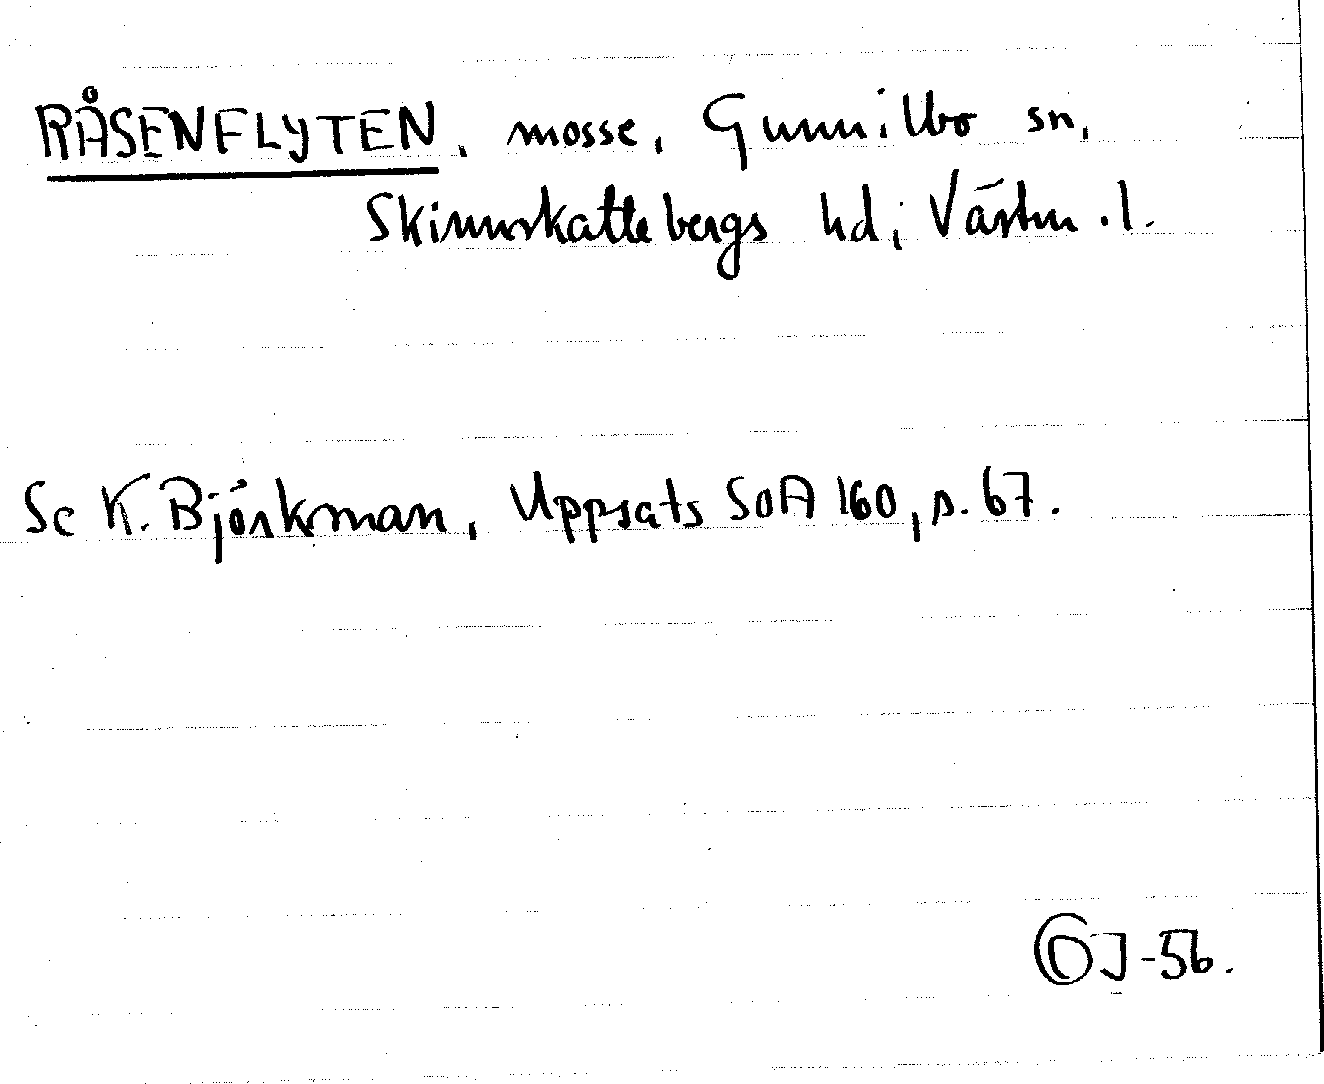 RÅSENFLYTEN, mosse, Gunnilbo sn,
Skinnskattebergs hd, Västm.l.
Se K. Björkman, Uppsats SOA 160, p. 67.
-56.